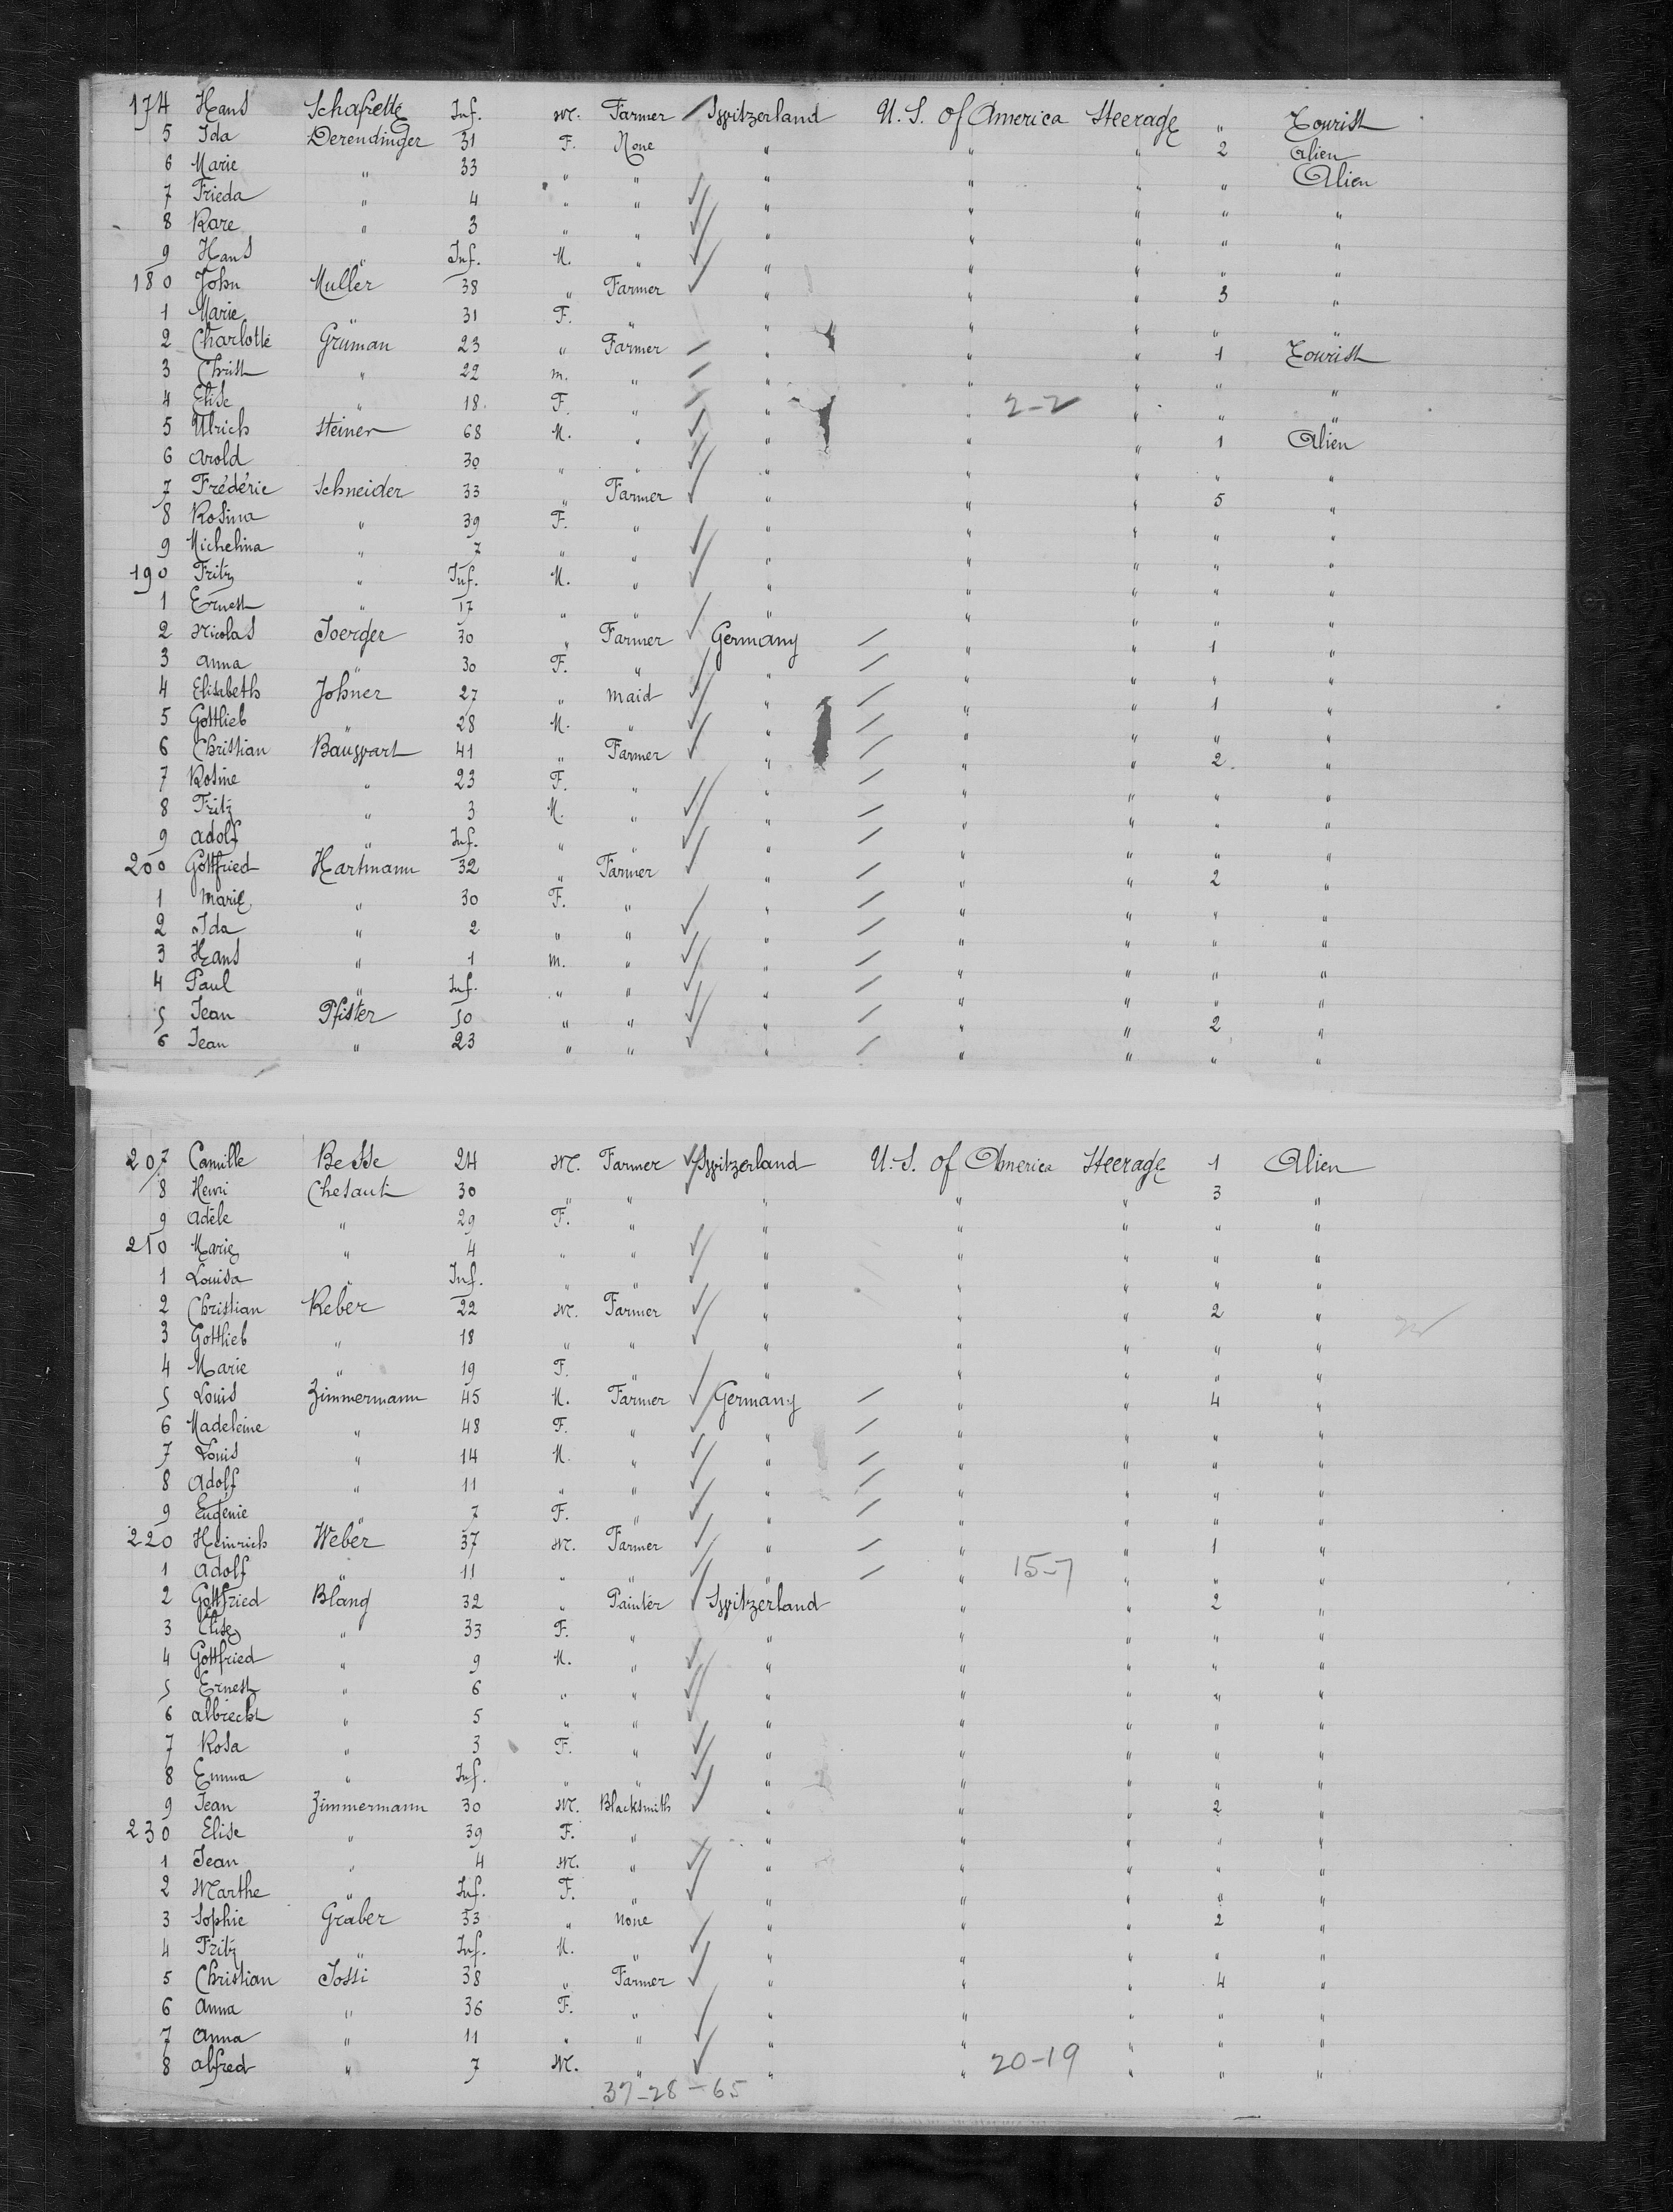 174 Hans Schafrette Inf. M. Farmer Switzerland U. S. of America Steerage " Tourist
5 Ida Derendinger 31 F. None " " " 2 Alien
6 Marie " 33 " " " " " " Alien
7 Frieda " 4 " " " " " " "
8 Rare " 3 " " " " " " "
9 Hans " Inf. M. " " " " " "
180 John Muller 38 " Farmer " " " 3 "
1 Marie " 31 F. " " " " " "
2 Charlotte Grüman 23 " Farmer " " " 1 Tourist
3 Christ " 22 m. " " " " " "
4 Elise " 18 F. " " " 2-2 " " "
5 Ulrich Steiner 68 M. " " " " 1 Alien
6 Arold 30 " " " " " " "
7 Frédéric Schneider 33 " Farmer " " " 5 "
8 Rosina " 39 F. " " " " " "
9 Michelina " 7 " " " " " " "
190 Fritz " Inf. M. " " " " " "
1 Ernest " 17 " " " " " " "
2 Nicolas Joerger 30 " Farmer Germany " " 1 "
3 Anna " 30 F. " " " " " "
4 Elisabeth Johner 27 " maid " " " 1 "
5 Gottlieb " 28 M. " " " " " "
6 Christian Baugvart 41 " Farmer " " " 2 "
7 Rosine " 23 F. " " " " " "
8 Fritz " 3 M. " " " " " "
9 Adolf " Inf. " " " " " " "
200 Gottfried Hartmann 32 " Farmer " " " 2 "
1 Marie " 30 F. " " " " " "
2 Ida " 2 " " " " " " "
3 Hans " 1 m. " " " " " "
4 Paul " Inf. " " " " " " "
5 Jean Pfister 50 " " " " " 2 "
6 Jean " 23 " " " " " " "
207 Camille Besse 24 M. Farmer Switzerland U. S. of America Steerage 1 Alien
8 Henri Chesaut 30 " " " " " 3 "
9 Adèle " 29 F. " " " " " "
210 Marie " 4 " " " " " " "
1 Louisa " Inf. " " " " " " "
2 Christian Reber 22 M. Farmer " " " 2 "
3 Gottlieb " 18 " " " " " " "
4 Marie " 19 F. " " " " " "
5 Louis Zimmermann 45 M. Farmer Germany " " 4 "
6 Madeleine " 48 F. " " " " " "
7 Louis " 14 M. " " " " " "
8 Adolf " 11 " " " " " " "
9 Eugénie " 7 F. " " " " " "
220 Heinrich Weber 37 M. Farmer " " " 1 "
1 Adolf " 11 " " " " 15-7 " " "
2 Gottfried Blang 32 " Painter Switzerland " " 2 "
3 Elise " 33 F. " " " " " "
4 Gottfried " 9 M. " " " " " "
5 Ernest " 6 " " " " " " "
6 Albrecht " 5 " " " " " " "
7 Rosa " 3 F. " " " " " "
8 Emma " Inf. " " " " " " "
9 Jean Zimmermann 30 M. Blacksmith " " " 2 "
230 Elise " 39 F. " " " " " "
1 Jean " 4 M. " " " " " "
2 Marthe " Inf. F. " " " " " "
3 Sophie Graber 33 " None " " " 2 "
4 Fritz " Inf. M. " " " " " "
5 Christian Jossi 38 " Farmer " " " 4 "
6 Anna " 36 F. " " " " " "
7 Anna " 11 " " " " " " "
8 Alfred " 7 M. " " " 20-19 " " "
37-28-65